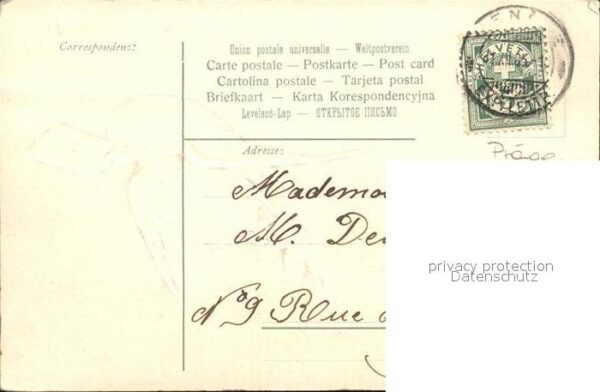 Correspondenz:
Union postale universelle — Weltpostverein
Carte postale — Postkarte — Post card
Cartolina postale — Tarjeta postal
Briefkaart — Karta Korespondencyjna
Levelezö-Lap — ОТКРЫТОЕ ПИСЬМО
Adresse:
Prägo
Mademo
M. De
privacy protection
Datenschutz
No 9 Rue